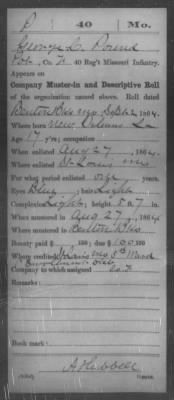 P | 40 | Mo.
George C. Pound
Pvt., Co. K, 40 Reg't Missouri Infantry.
Appears on
Company Muster-in and Descriptive Roll
of the organization named above. Roll dated
Benton Bks Mo Sept 2, 1864.
Where born New Orleans La
Age 17 y'rs; occupation
When enlisted Aug 27, 1864.
Where enlisted St Louis Mo
For what period enlisted one years.
Eyes Blue; hair Light
Complexion Light; height 5 ft. 7 in.
When mustered in Aug 27, 1864
Where mustered in Benton Bks
Bounty paid $ 100; due $ 100 100
Where credited St Louis Mo 5th Ward
Company to which assigned Co. K
Remarks:
Book mark:
Copyist.